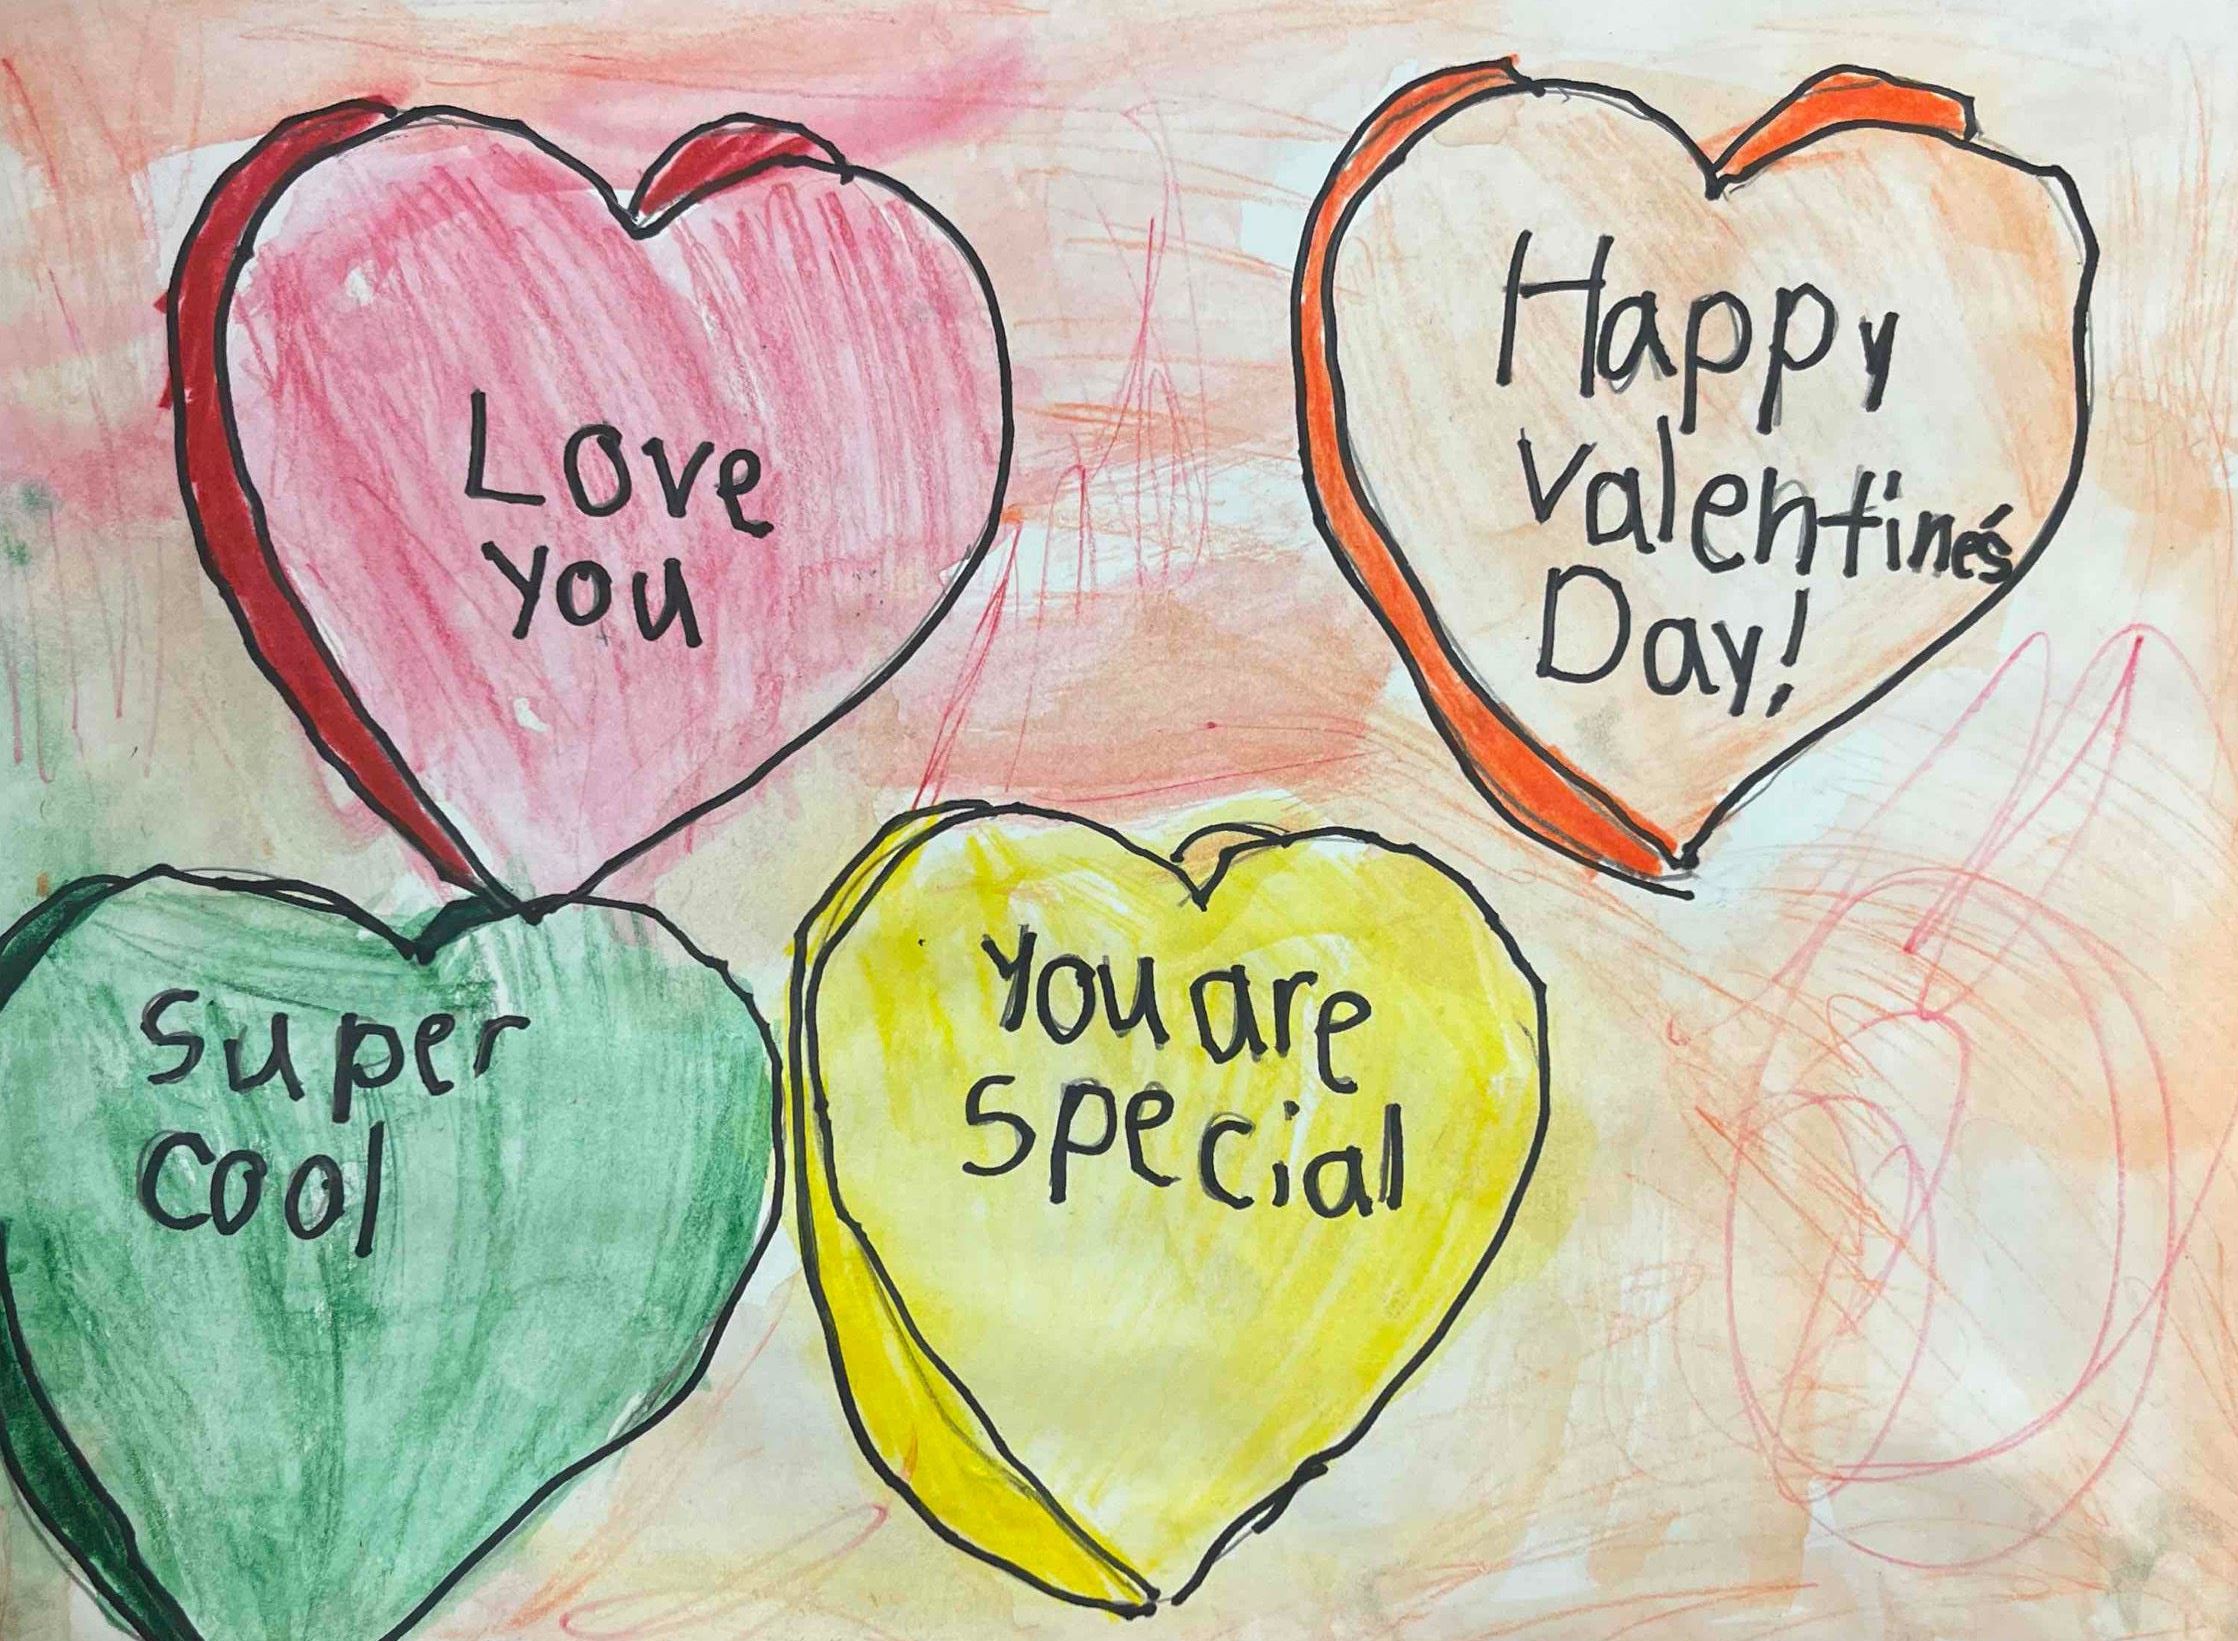 Love
you
Happy
Valentine's
Day!
Super
cool
You are
special